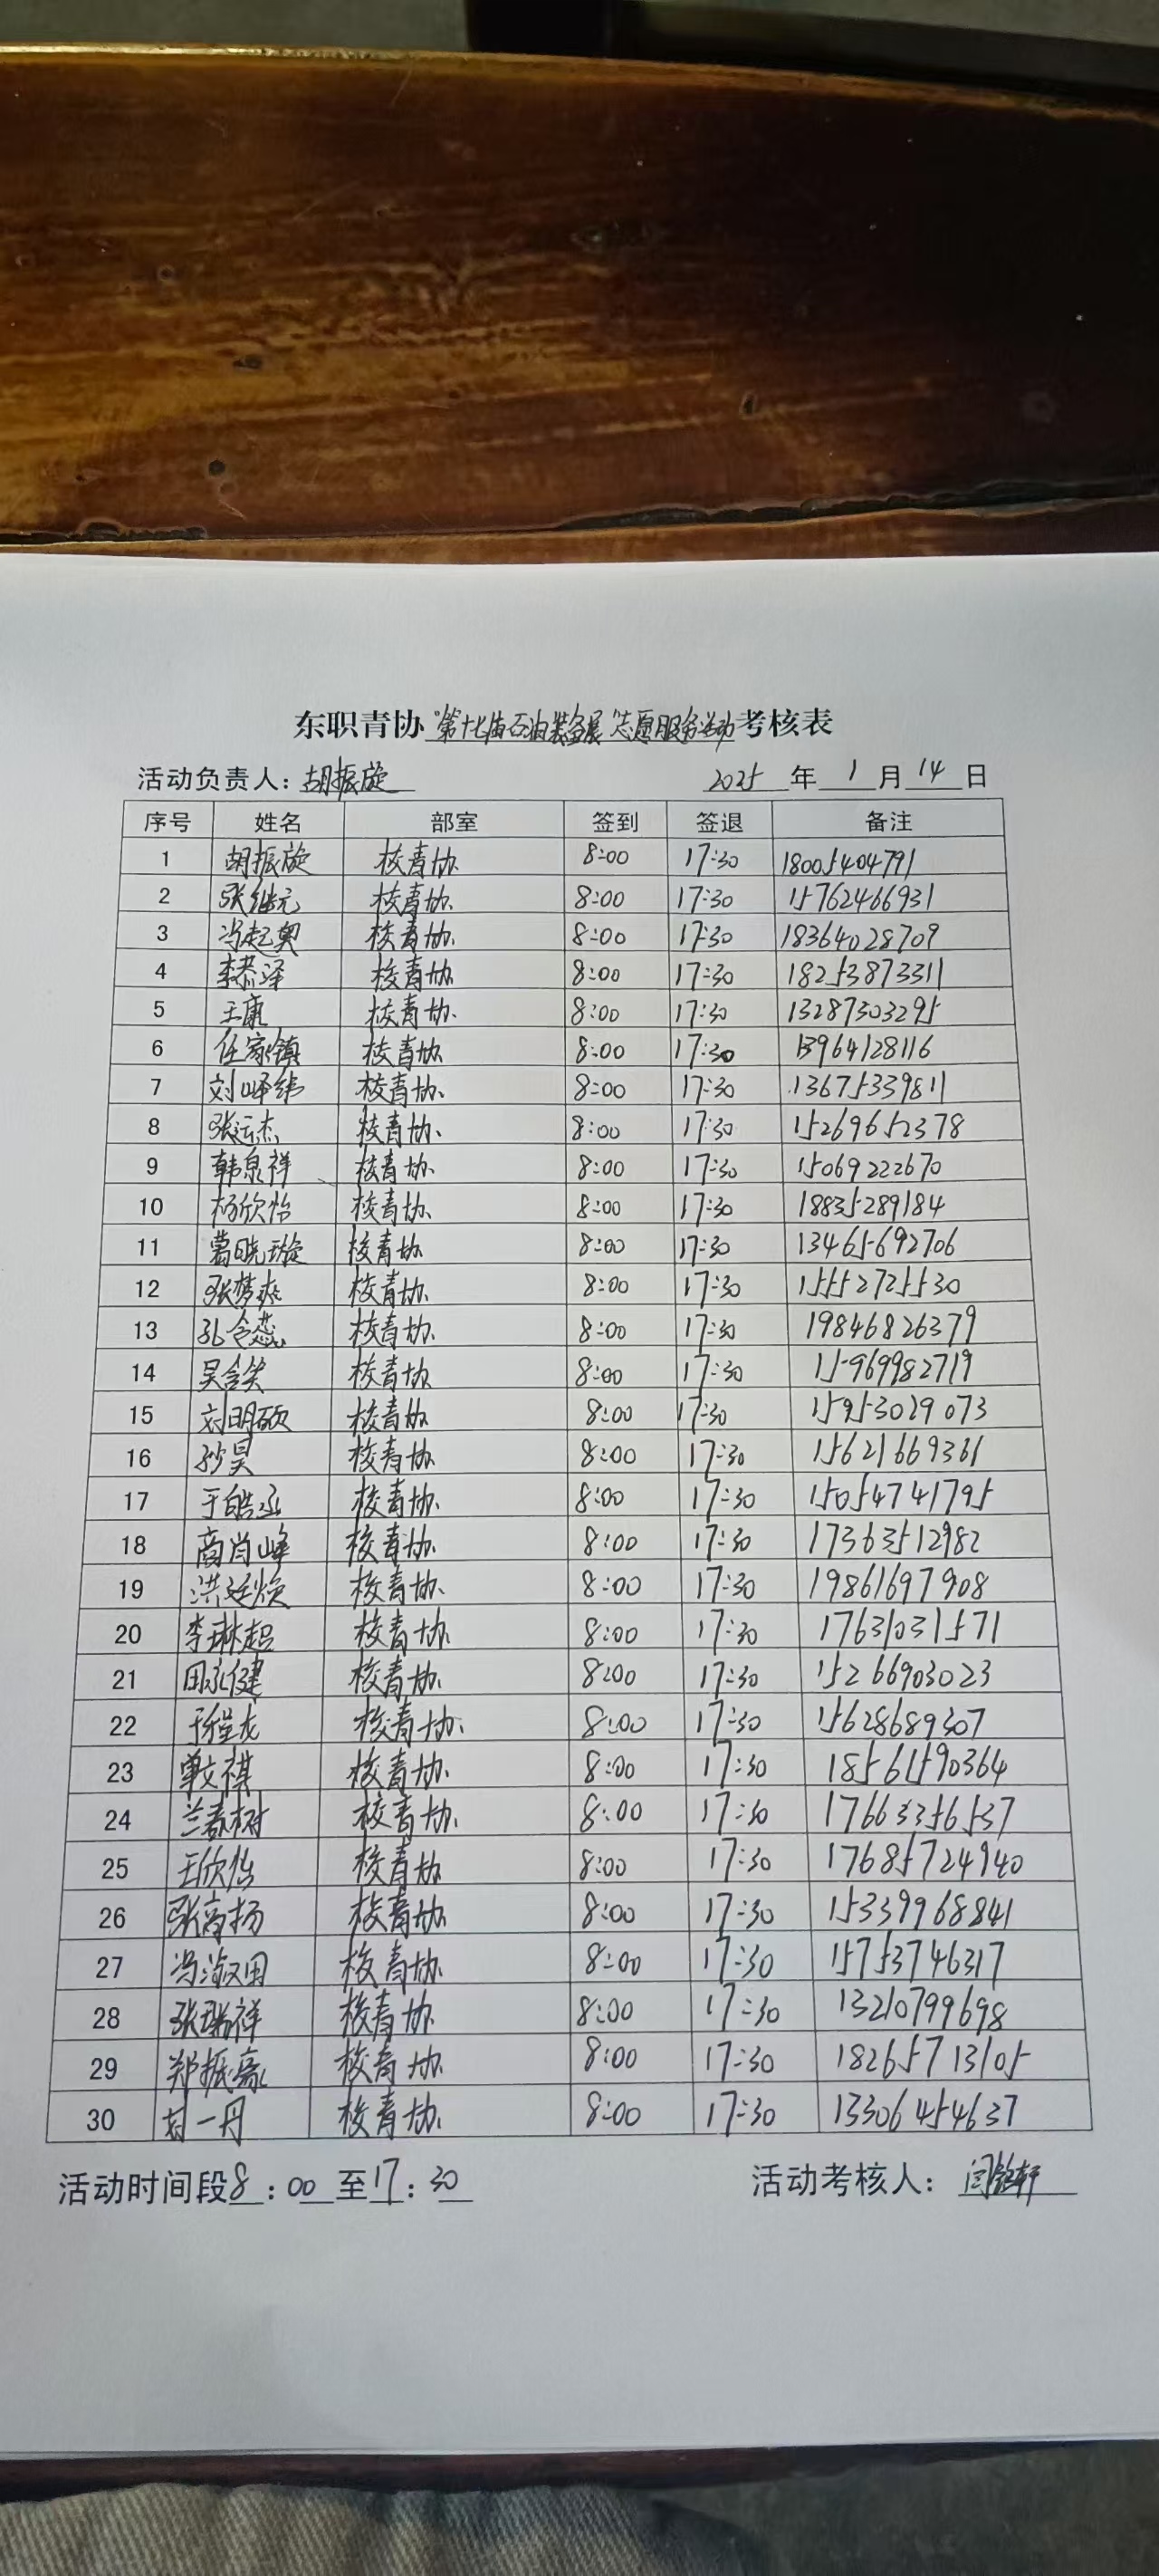 东职青协"第十七届石油装备展"志愿服务活动考核表
活动负责人：胡振旋 2025年1月14日
序号 姓名 部室 签到 签退 备注
1 胡振旋 校青协 8:00 17:30 18005404791
2 张继元 校青协 8:00 17:30 15762466931
3 冯起奥 校青协 8:00 17:30 18364028709
4 李恭泽 校青协 8:00 17:30 18253873311
5 王康 校青协 8:00 17:30 13287303295
6 任家镇 校青协 8:00 17:30 13964128116
7 刘峄纬 校青协 8:00 17:30 13675339811
8 张运杰 校青协 8:00 17:30 15269652378
9 韩泉祥 校青协 8:00 17:30 15069222670
10 杨欣怡 校青协 8:00 17:30 18835289184
11 葛晓璇 校青协 8:00 17:30 13465692706
12 张梦爽 校青协 8:00 17:30 15552725530
13 孔令蕊 校青协 8:00 17:30 19846826379
14 吴含笑 校青协 8:00 17:30 15969982719
15 刘明硕 校青协 8:00 17:30 15953029073
16 孙昊 校青协 8:00 17:30 15621669361
17 于皓丞 校青协 8:00 17:30 15054741795
18 商肖峰 校青协 8:00 17:30 17363512982
19 洪廷焕 校青协 8:00 17:30 19861697908
20 李琳超 校青协 8:00 17:30 17631031571
21 田永健 校青协 8:00 17:30 15266903023
22 校青协 8:00 17:30 15628689307
23 单文祺 校青协 8:00 17:30 18561590364
24 兰春树 校青协 8:00 17:30 17663356537
25 王欣怡 校青协 8:00 17:30 17685724940
26 张高扬 校青协 8:00 17:30 15339968841
27 冯淑田 校青协 8:00 17:30 15753746317
28 张瑞祥 校青协 8:00 17:30 13210799698
29 郑振豪 校青协 8:00 17:30 18265713105
30 刘一丹 校青协 8:00 17:30 13306454637
活动时间段8：00至17：30 活动考核人：